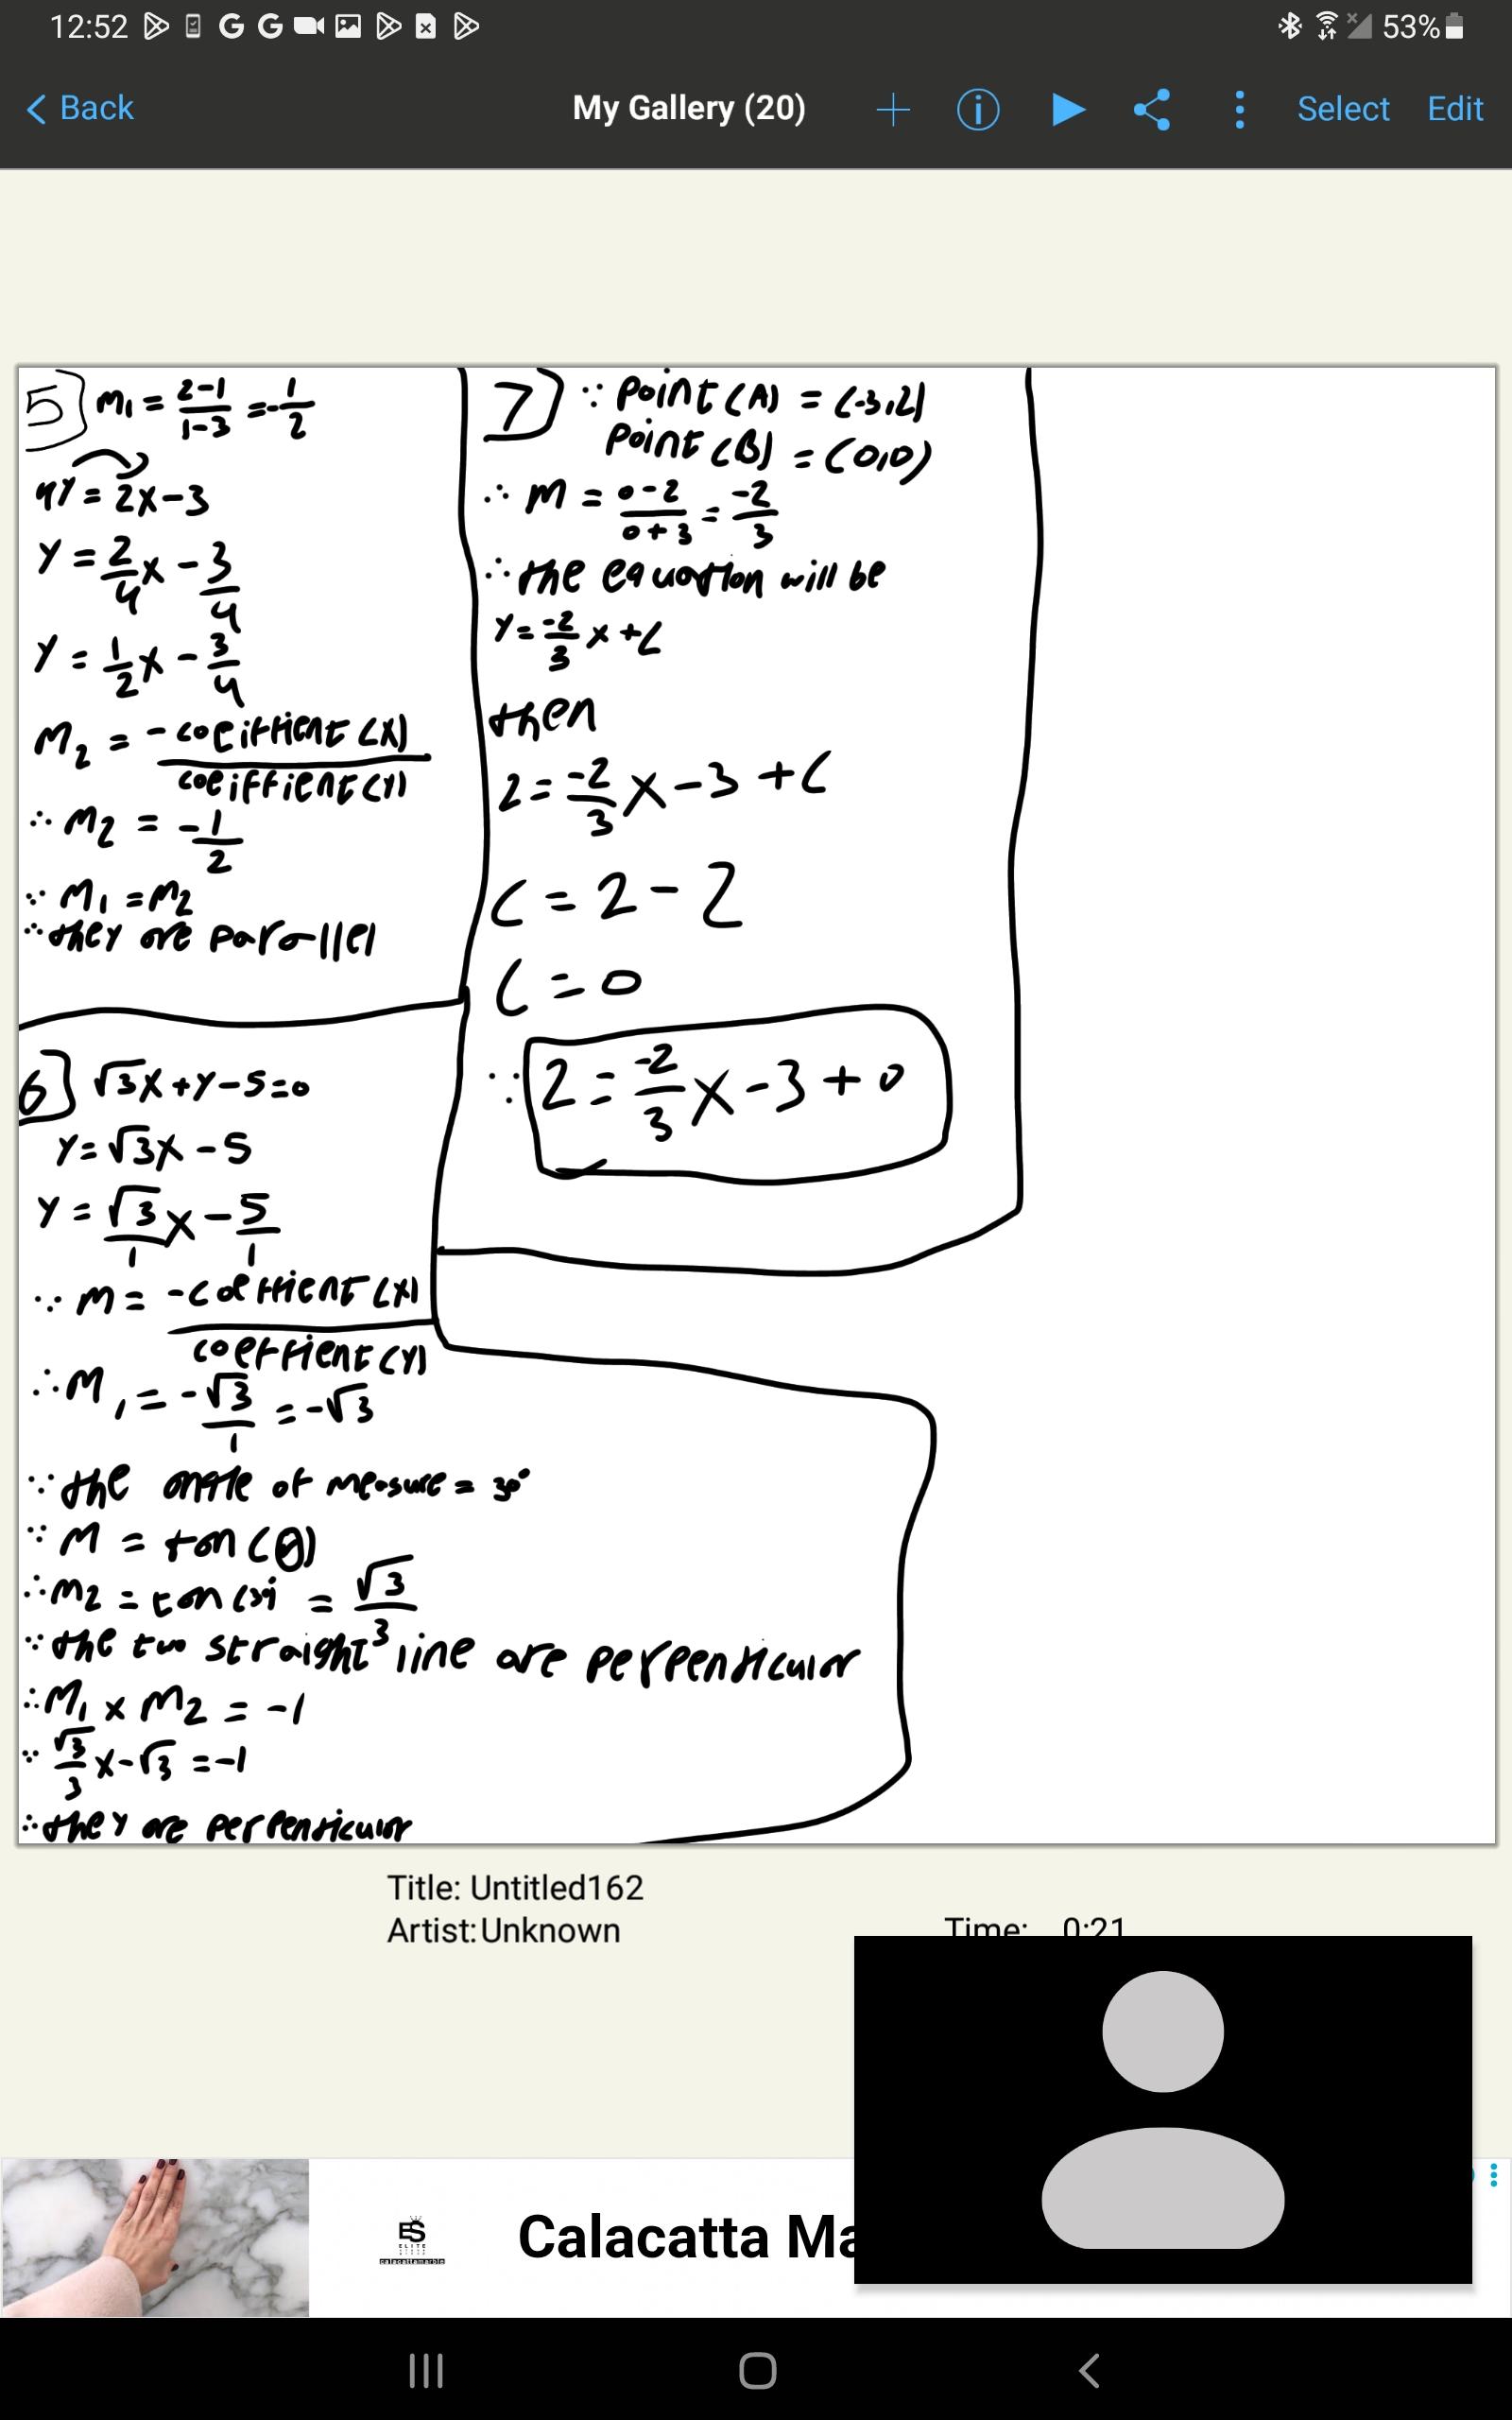 12:52
53%
Back
My Gallery (20)
Select
Edit
5) M₁ = (2-1)/(1-3) = -1/2
4Y = 2X-3
Y = 2/4 X - 3/4
Y = 1/2 X - 3/4
M₂ = -coeiffient(X)/coeiffient(Y)
∴ M₂ = -1/2
∵ M₁ = M₂
∴ they are parallel
6) √3X+Y-5=0
Y=√3X-5
Y = √3/1 X - 5/1
∵ M = -coeffient(X)/coeffient(Y)
∴ M₁ = -√3/1 = -√3
∵ the angle of measure = 30°
∵ M = tan(θ)
∴ M₂ = tan(30) = √3/3
∵ the two straight line are perpendicular
∴ M₁ x M₂ = -1
∵ √3/3 x -√3 = -1
∴ they are perpendicular
7) ∵ Point(A) = (-3,2)
Point(B) = (0,0)
∴ M = (0-2)/(0+3) = -2/3
∴ the equation will be
Y = -2/3 X + C
then
2 = -2/3 X -3 + C
C = 2 - 2
C = 0
∵ 2 = -2/3 X -3 + 0
Title: Untitled162
Artist: Unknown
Time: 0:21
ES
ELITE
Calacatta Ma